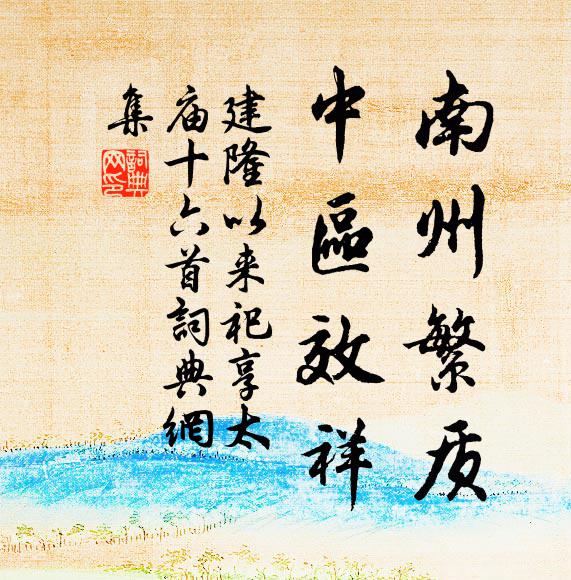 南州繁质
中區效祥
建隆以来祀享太
庙十六首詞典網
集
詞典
网印